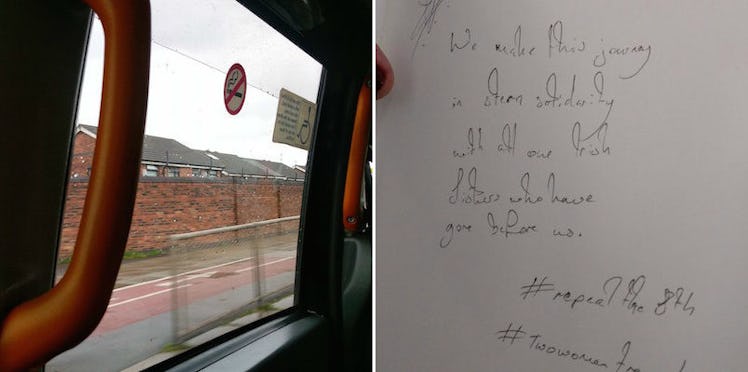 We make this journey
in stern solidarity
with all our Irish
Sisters who have
gone before us.
#repeal the 8th
#Twowomentravel